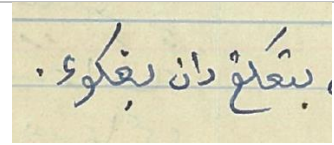 بڠكڠ دان بڠكوء .